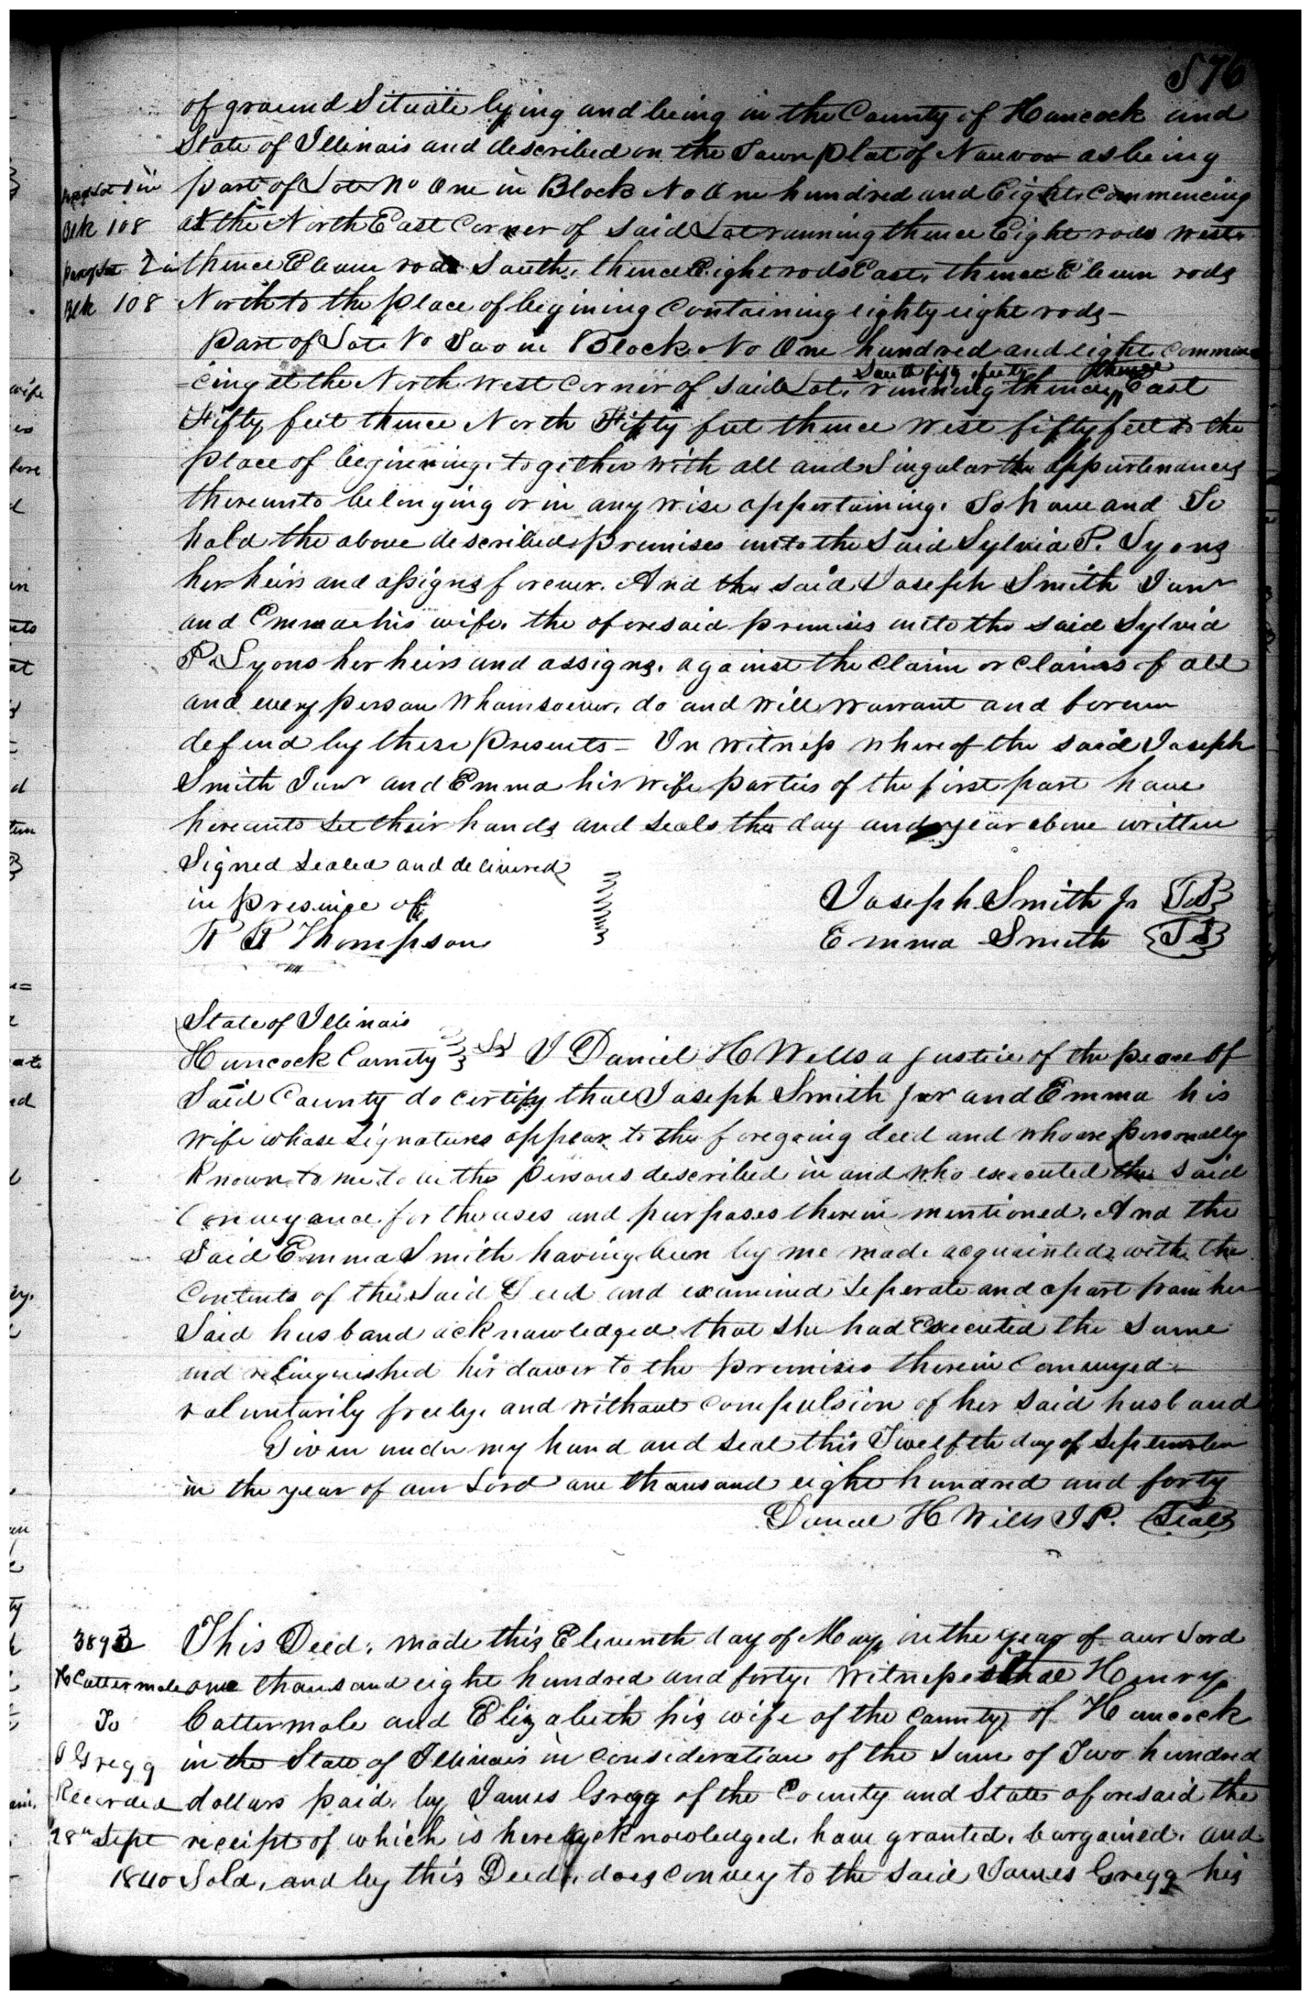 576
of ground Situate lying and being in the County of Hancock and
State of Illinois and described on the Town plat of Nauvoo as being
part of Lot No One in Block No One hundred and Eight, Commencing
at the North East Corner of said Lot running thence Eight rods west
thence Eleven rods South, thence Eight rods East, thence Eleven rods
North to the place of begining Containing eighty eight rods—
Lot 1 in
Blk 108
part Lot 2 in
Blk 108
Part of Lot No Two in Block No One hundred and eight Commen
cing at the North West Corner of said Lot, running South fifty feet thence East
Fifty feet thence North Fifty feet thence West fifty feet to the
place of beginning, together with all and Singular the appurtenances
thereunto belonging or in any wise appertaining. To have and To
hold the above described premises unto the Said Sylvia P. Lyons
her heirs and assigns forever. And the said Joseph Smith Junr
and Emma his wife, the aforesaid premises unto the said Sylvia
P. Lyons her heirs and assigns, against the Claim or Claims of all
and every person Whomsoever, do and Will Warrant and forever
defend by these presents— In Witness whereof the said Joseph
Smith Junr and Emma his Wife parties of the first part have
hereunto Set their hands and Seals the day and year above written
Signed Sealed and delivered
in presence of
R B Thompson
Joseph Smith Jr
Emma Smith
State of Illinois
Hancock County Ss I Daniel H Wells a Justice of the peace of
Said County do certify that Joseph Smith Jur and Emma his
Wife whose Signatures appear to the foregoing deed and who are personally
Known to me to be the persons described in and who executed the said
Conveyance for the uses and purposes therein mentioned. And the
Said Emma Smith having been by me made acquainted with the
Contents of the Said Deed and examined Seperate and apart from her
Said husband acknowledged that she had Executed the Same
and relinquished her dower to the premises therein Conveyed
voluntarily freely, and without compulsion of her said husband
Given under my hand and seal this Twelfth day of September
in the year of our Lord one thousand eight hundred and forty
Daniel H Wells J P. Seal
3893
H Cattermole
To
J Gregg
Recorded
28th Sept
1840
This Deed, made this Eleventh day of May in the year of our Lord
one thousand eight hundred and forty, Witnesses that Henry
Cattermole and Elizabeth his wife of the County of Hancock
in the State of Illinois in Consideration of the Sum of Two hundred
dollars paid, by James Gregg of the County and State aforesaid the
receipt of which is hereby acknowledged, have granted, bargained, and
Sold, and by this Deed, does convey to the said James Gregg his